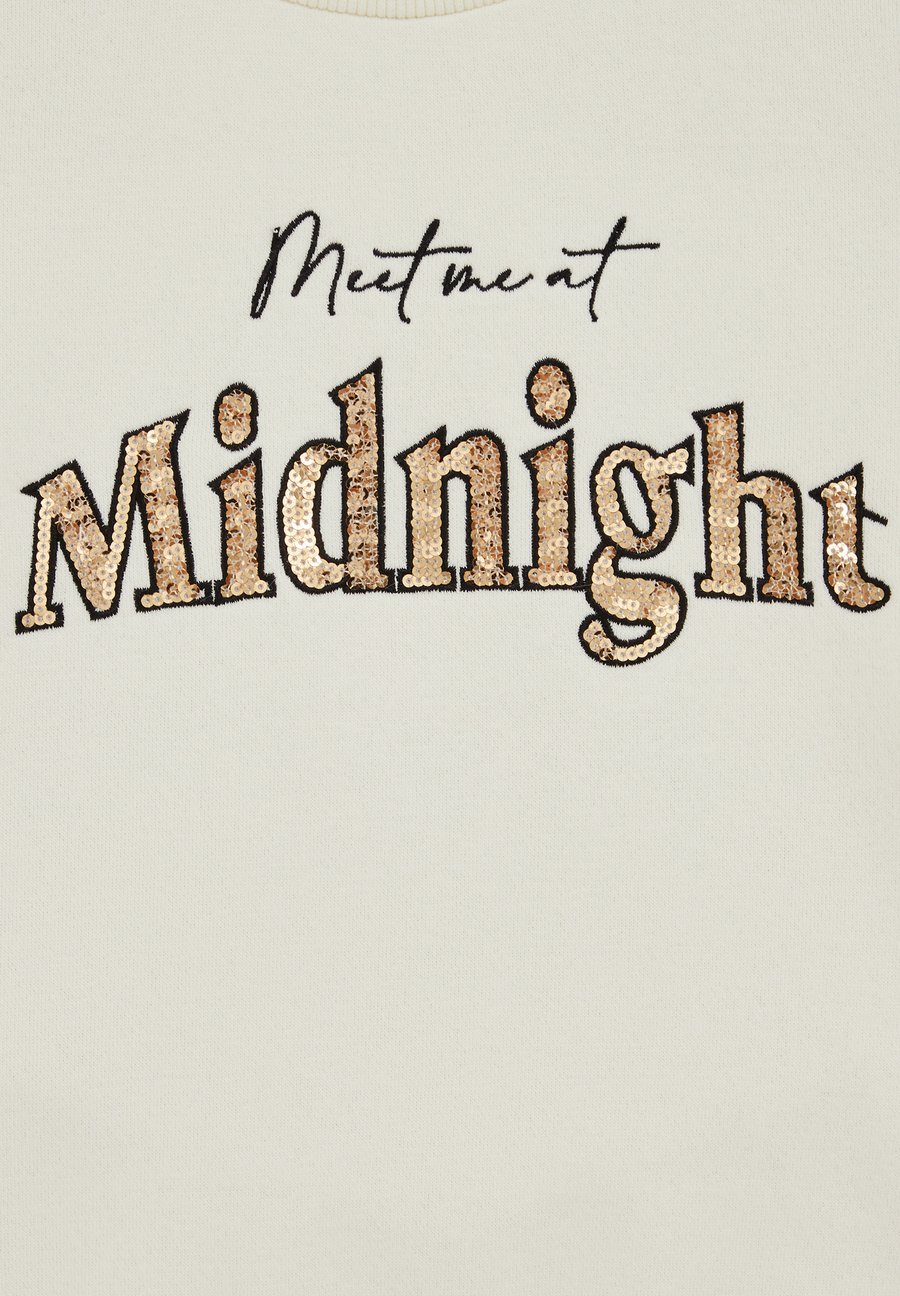 Meet me at
Midnight